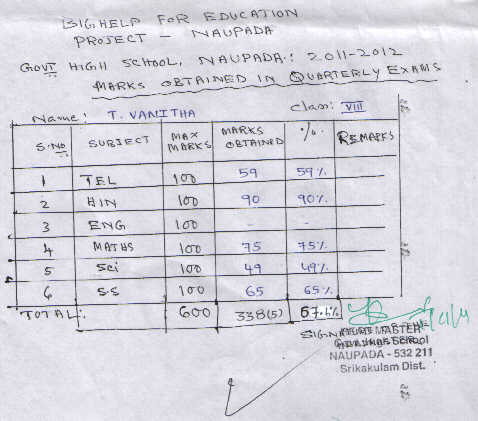 BIGHELP FOR EDUCATION
PROJECT - NAUPADA
GOVT HIGH SCHOOL, NAUPADA: 2011-2012
MARKS OBTAINED IN QUARTERLY EXAMS
Name: T. VANITHA Class: VIII
S.No SUBJECT MAX MARKS MARKS OBTAINED % REMARKS
1 TEL 100 59 59%
2 HIN 100 90 90%
3 ENG 100 - -
4 MATHS 100 75 75%
5 Sci 100 49 49%
6 S.S 100 65 65%
TOTAL: 600 338(5)
NAUPADA - 532 211
Srikakulam Dist.